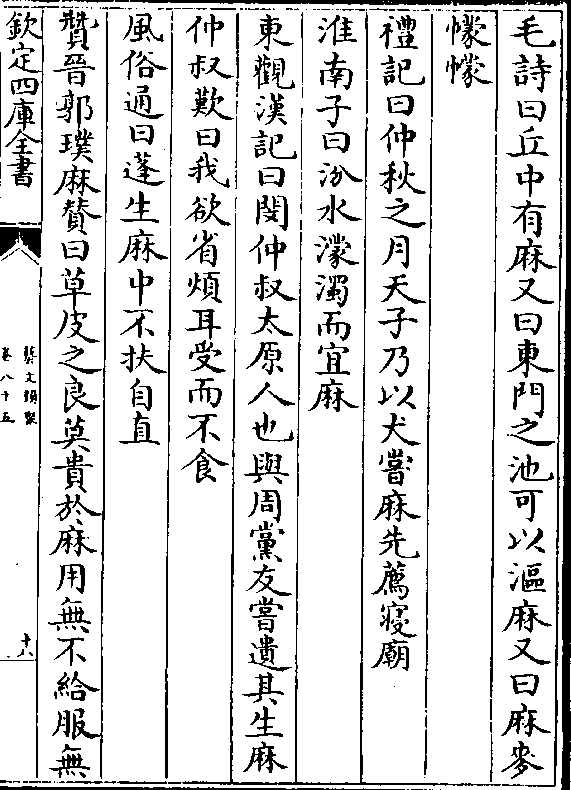 毛詩曰丘中有麻又曰東門之池可以漚麻又曰麻麥
幪幪
禮記曰仲秋之月天子乃以犬嘗麻先薦寢廟
淮南子曰汾水濛濁而宜麻
東觀漢記曰閔仲叔太原人也與周黨友嘗遺其生麻
仲叔歎曰我欲省煩耳受而不食
風俗通曰蓬生麻中不扶自直
贊晉郭璞麻贊曰草皮之良莫貴於麻用無不給服無
欽定四庫全書
藝文類聚
卷八十五
十八